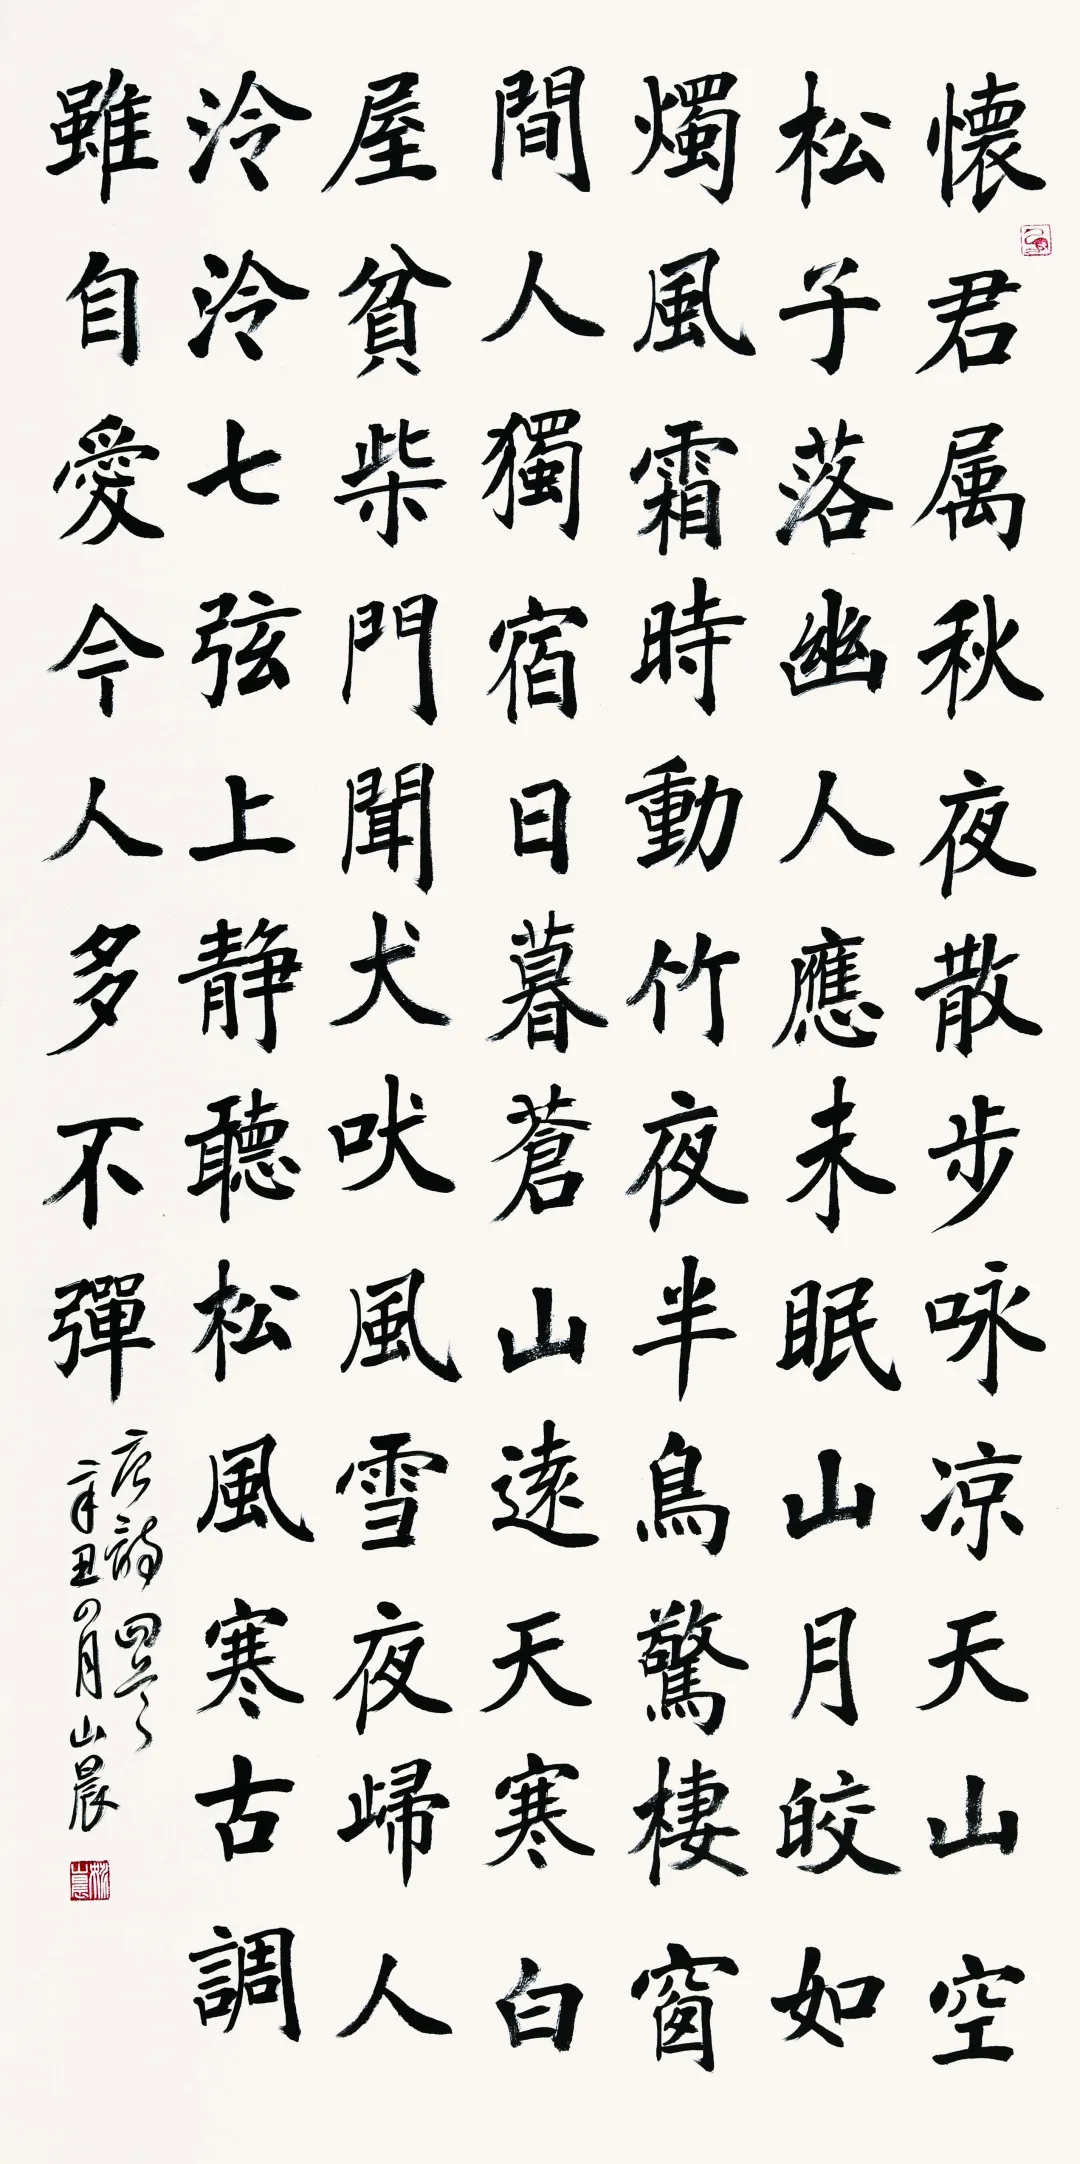 懷君属秋夜散步咏凉天山空
松子落幽人應未眠山月皎如
燭風霜時動竹夜半鳥驚棲窗
間人獨宿日暮蒼山遠天寒白
屋貧柴門聞犬吠風雪夜歸人
泠泠七弦上静聽松風寒古調
雖自愛今人多不彈
唐詩四首
辛丑四月山晨